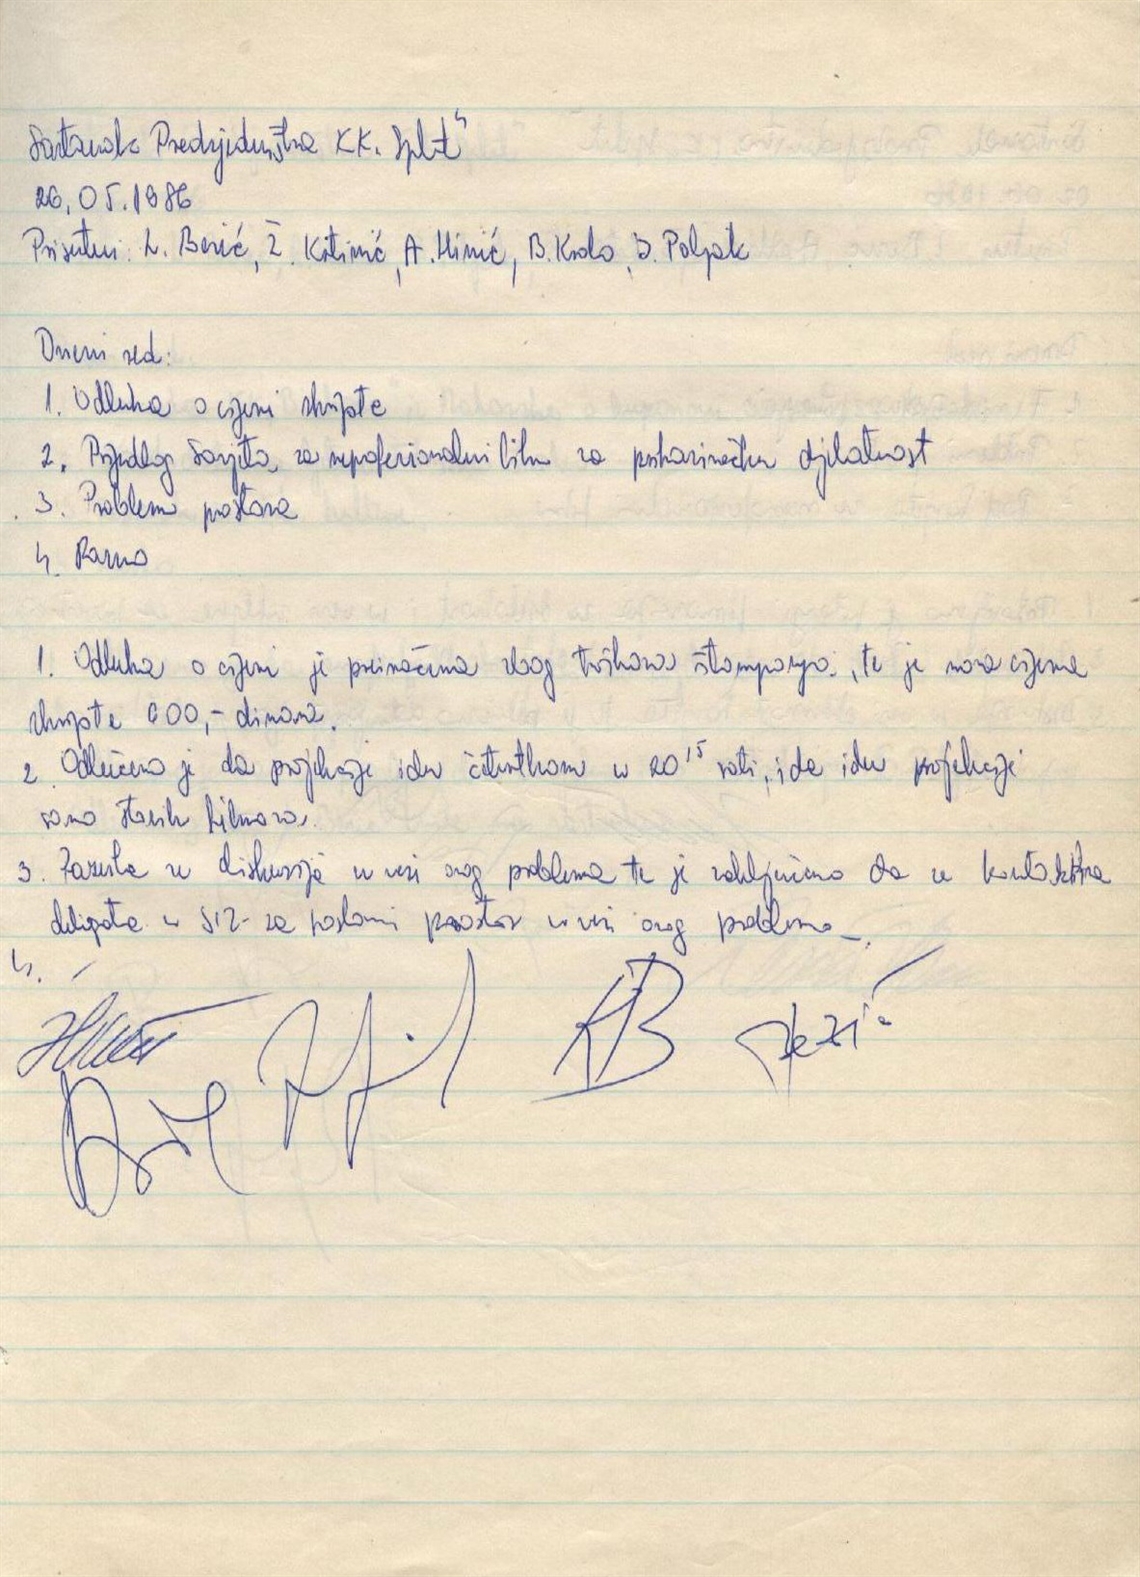 Sastanak Predsjedništva KK. Split"
20.05.1986
Prisutni: Ž. , A. , B. Krolo, Poljak
Dnevni red:
1. Odluka o cijeni skripte
2. Prijedlog Savjeta za neprofesionalni film za prikazivačku djelatnost
3. Problem prostora
4. Razno
1. Odluka o cijeni je preinačena zbog troškova štampanja, te je nova cijena
skripte 600,- dinara.
2. Odlučeno je da projekcije idu četvrtkom u 20 15 sati, i da idu projekcije
samo starih filmova.
3. Zavela se diskusija u vezi ovog problema te je zaključeno da se kontaktira
delegata u SIZ-za poslovni prostor u vezi ovog problema.
4.